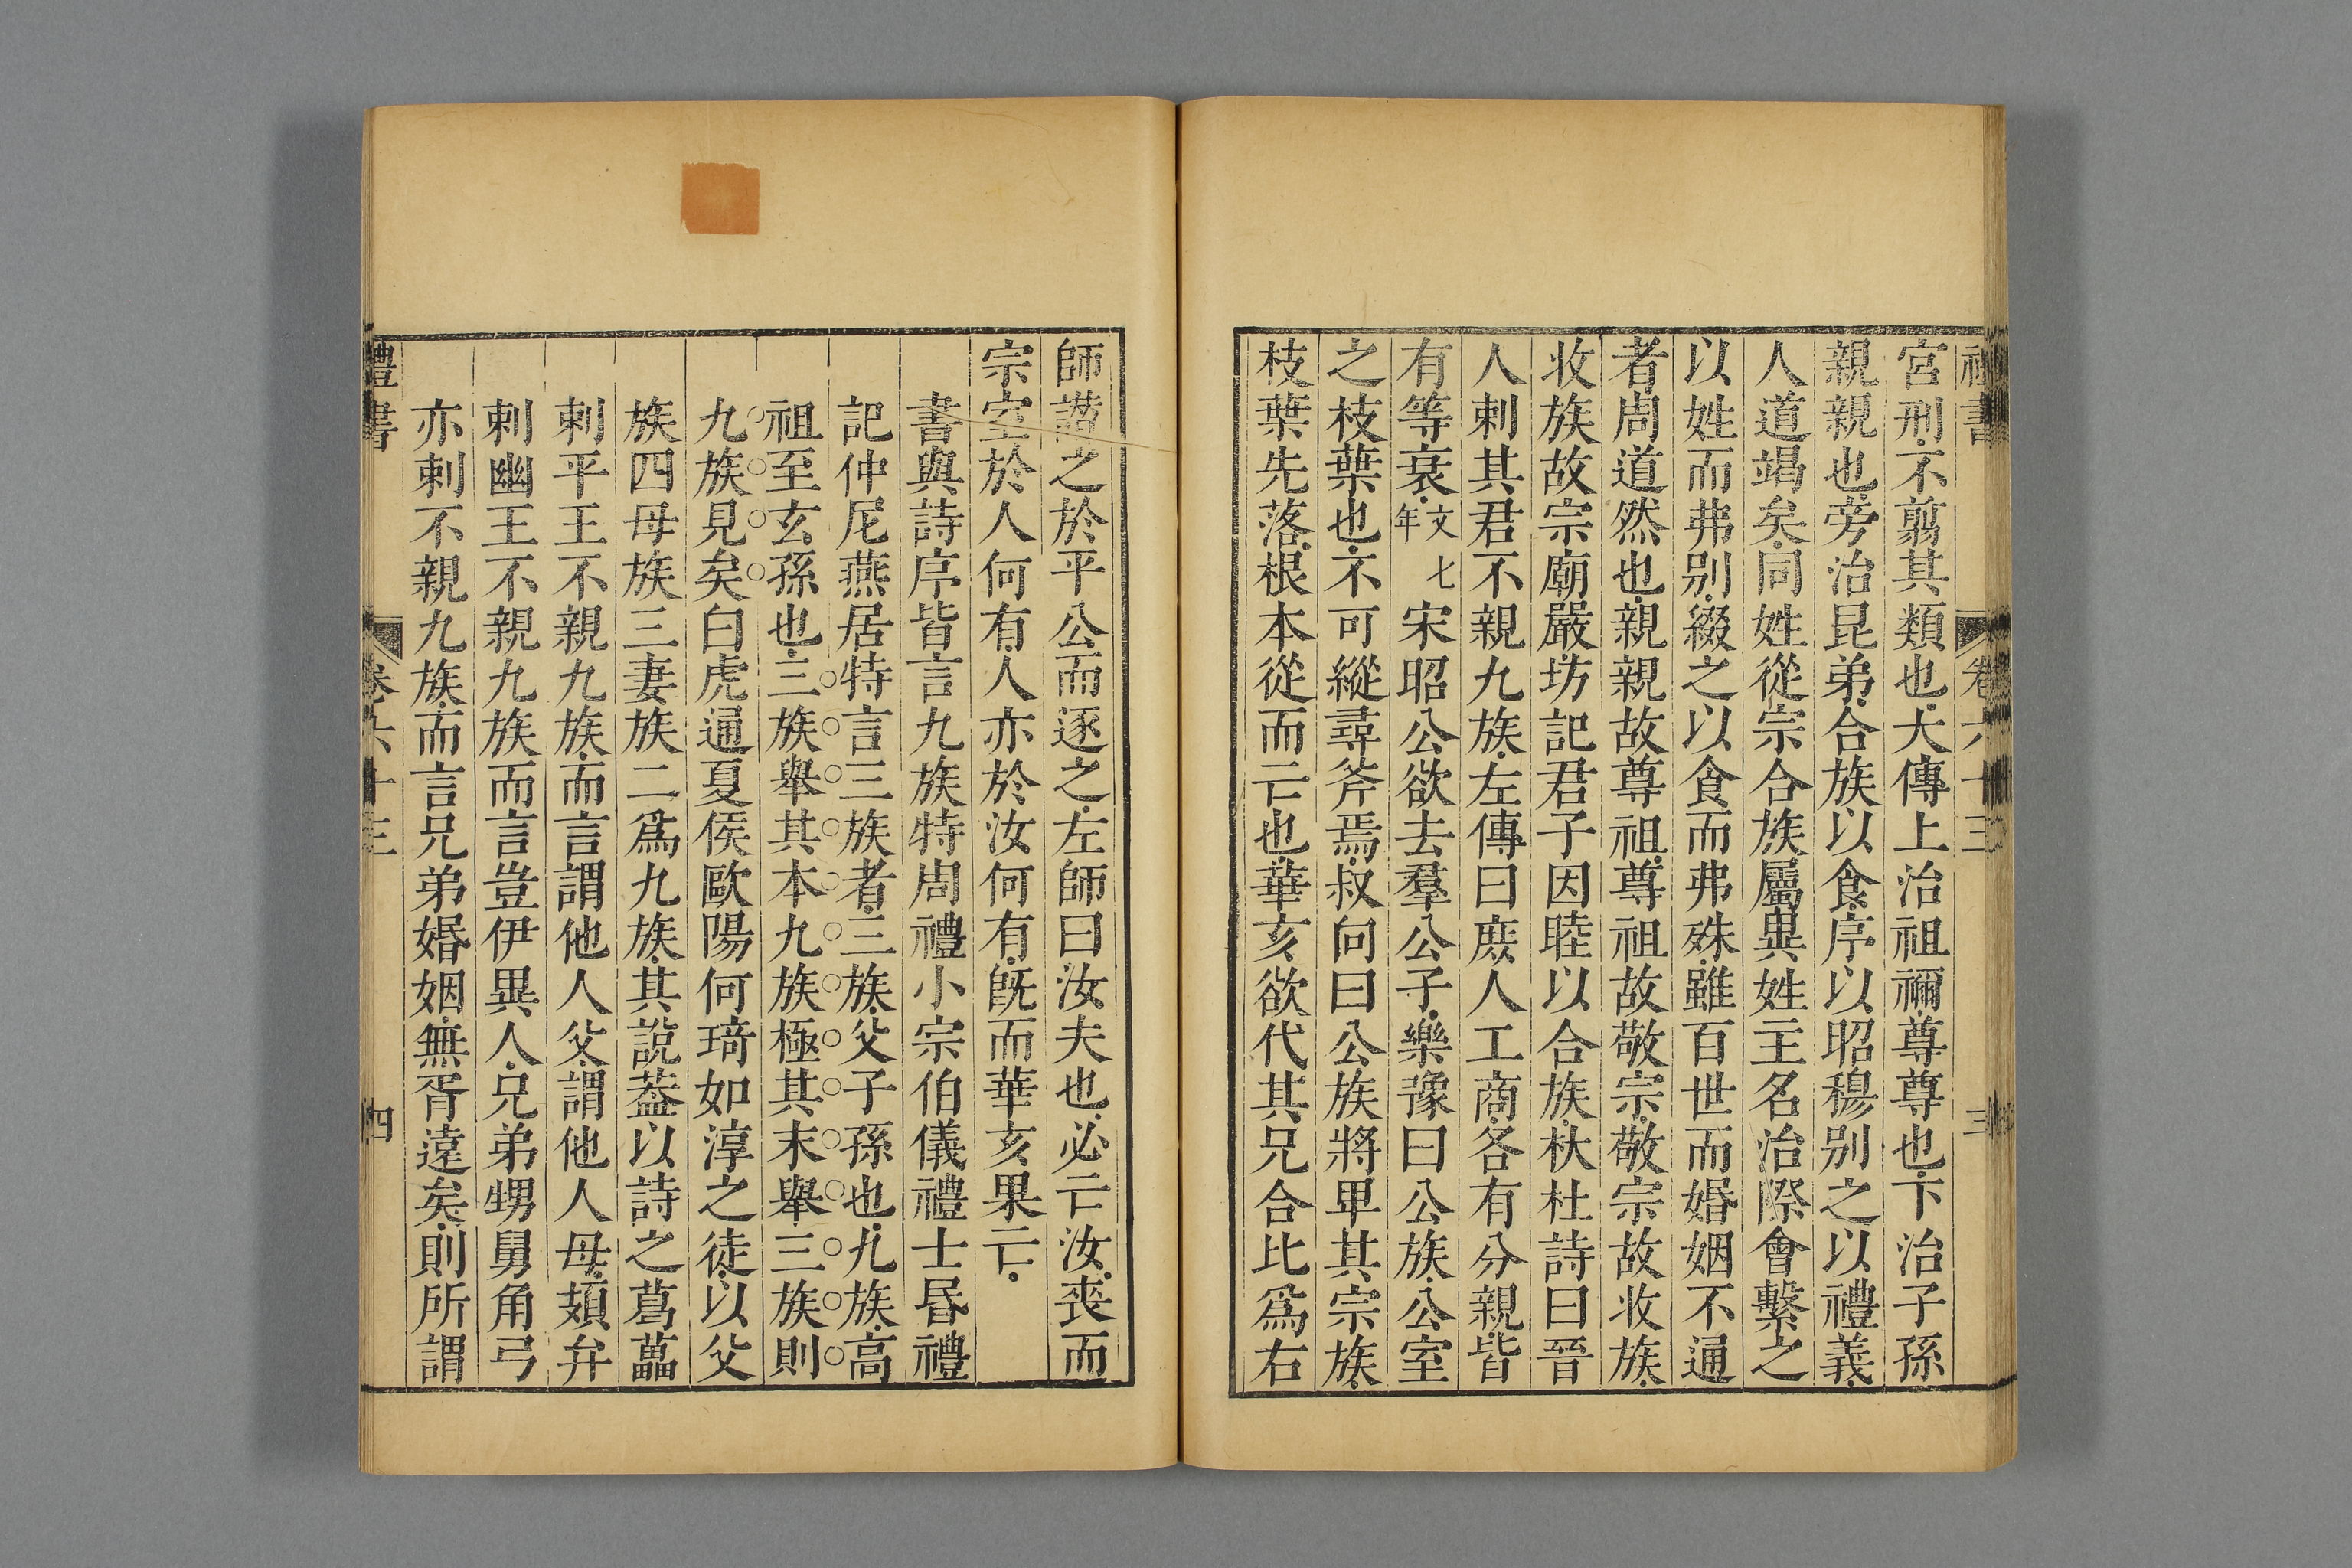 禮書 卷六十三 三
宮刑不翦其類也大傳上治祖禰尊尊也下治子孫
親親也旁治昆弟合族以食序以昭穆别之以禮義
人道竭矣同姓從宗合族屬異姓主名治際會繫之
以姓而弗别綴之以食而弗殊雖百世而婚姻不通
者周道然也親親故尊祖尊祖故敬宗敬宗故收族
收族故宗廟嚴坊記君子因睦以合族杕杜詩曰晉
人刺其君不親九族左傳曰庶人工商各有分親皆
有等衰文七年宋昭公欲去羣公子樂豫曰公族公室
之枝葉也不可縱尋斧焉叔向曰公族將畢其宗族
枝葉先落根本從而亡也華亥欲代其兄合比爲右
師譖之於平公而逐之左師曰汝夫也必亡汝喪而
宗室於人何有人亦於汝何有旣而華亥果亡
書與詩序皆言九族特周禮小宗伯儀禮士昏禮
記仲尼燕居特言三族者三族父子孫也九族高
祖至玄孫也三族舉其本九族極其末舉三族則
九族見矣白虎通夏侯歐陽何琦如淳之徒以父
族四母族三妻族二爲九族其說葢以詩之葛藟
刺平王不親九族而言謂他人父謂他人母頍弁
刺幽王不親九族而言豈伊異人兄弟甥舅角弓
亦刺不親九族而言兄弟婚姻無胥遠矣則所謂
禮書 卷六十三 四